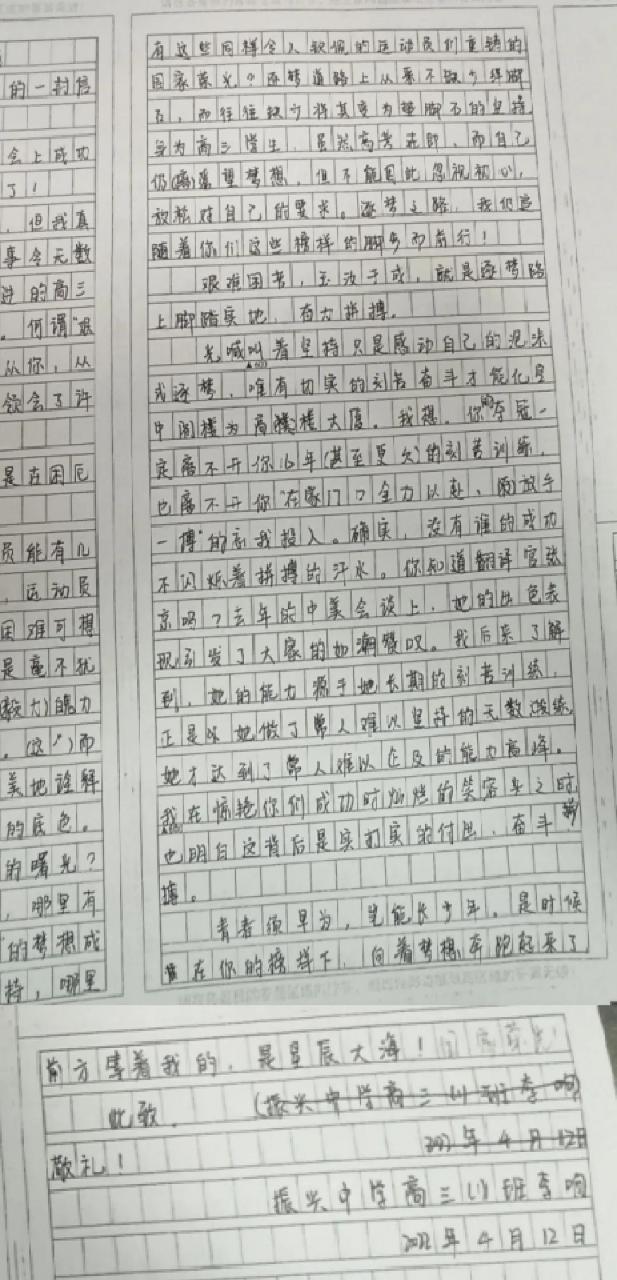 的一封信
会上成功
了！
，但我真
事令无数
进的高三
。何谓“艰
从你，从
领会了许
是在困厄
员能有几
，运动员
困难可想
是毫不犹
的魄力
。而
美地诠释
的底色。
的曙光？
，哪里有
的梦想成
持，哪里
有这些同样令人钦佩的运动员们重铸的
国家荣光？逐梦道路上从来不缺少绊脚
石，而往往缺少将其变为垫脚石的坚持
身为高三学生，虽然高考在即，而自己
仍离梦想，但不能因此忽视初心，
放松对自己的要求。逐梦之路，我们追
随着你们这些榜样的脚步而前行！
艰难困苦，玉汝于成，就是逐梦路
上脚踏实地，奋力拼搏。
光喊叫着坚持只是感动自己的泡沫
式逐梦，唯有切实的刻苦奋斗才能化空
中阁楼为高楼大厦。我想，你的夺冠一
定离不开你16年(甚至更久)的刻苦训练，
也离不开你“在家门口全力以赴、放手
一搏”的忘我投入。确实，没有谁的成功
不闪烁着拼搏的汗水。你知道翻译官张
京吗？去年的中美会谈上，她的出色表
现引发了大家的如潮赞叹。我后来了解
到，她的能力源于她长期的刻苦训练，
正是她做了常人难以坚持的无数次练
她才达到了常人难以企及的能力高峰。
我在惊艳你们成功时灿烂的笑容之时
也明白这背后是实打实的付出、奋斗拼
搏。
青者须早为，岂能长少年。是时候
在你的榜样下，向着梦想奔跑起来了
前方等着我的，是星辰大海！
此致
(振兴中学高三(1)班李响)
敬礼！
2022年4月12日
振兴中学高三(1)班李响
2022年4月12日